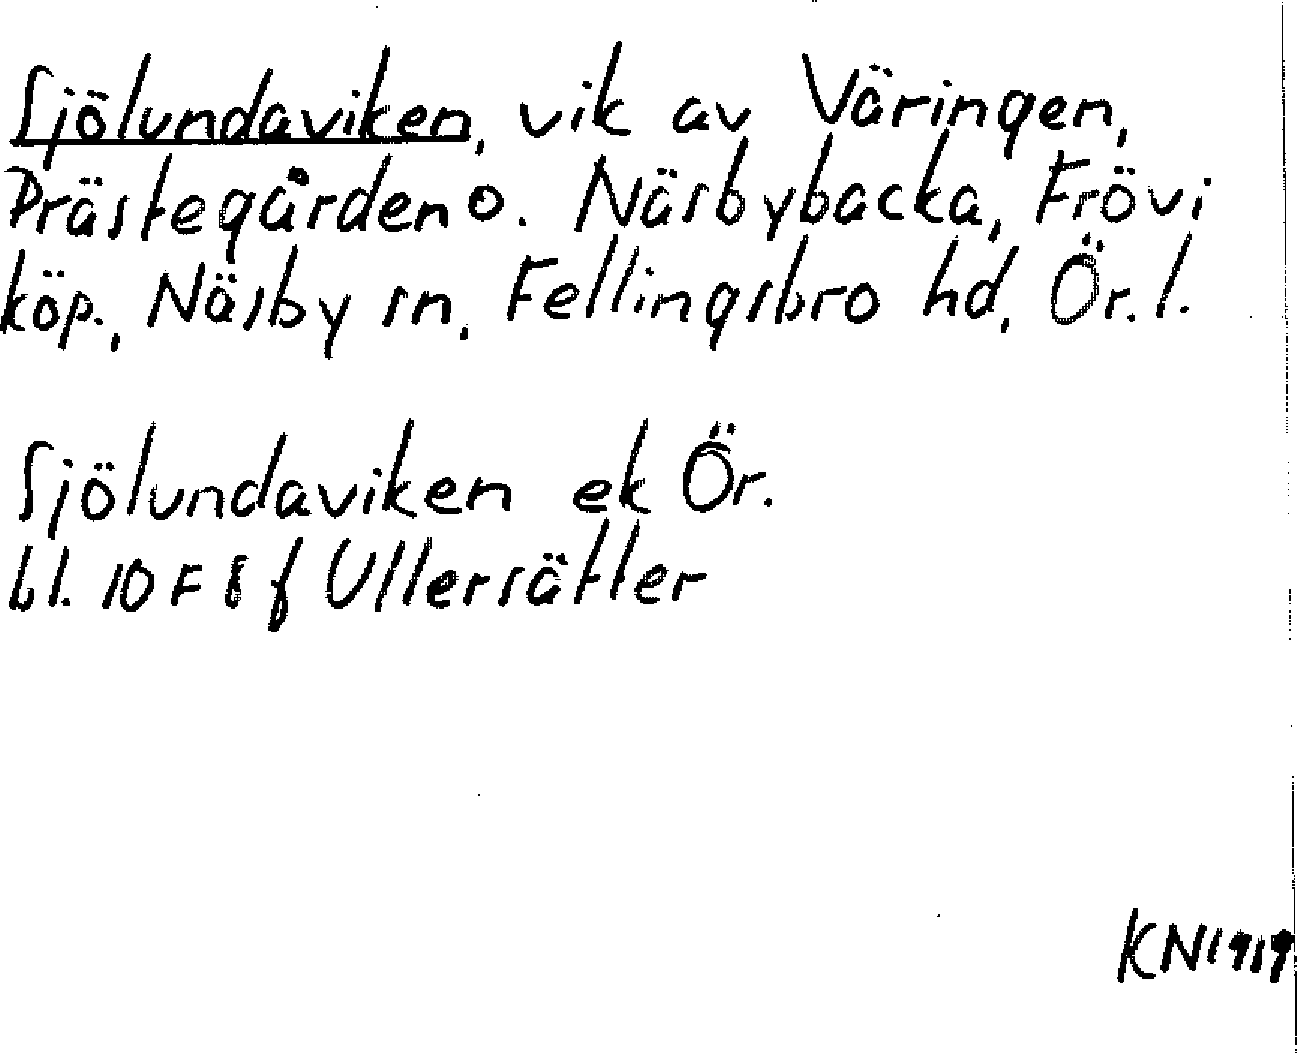 Sjölundaviken, vik av Väringen,
Prästegården o. Näsbybacka, Frövi
köp., Näsby sn, Fellingsbro hd, Ör. l.
Sjölundaviken ek Ör.
bl. 10 F 8 f Ullersätter
KN 1919